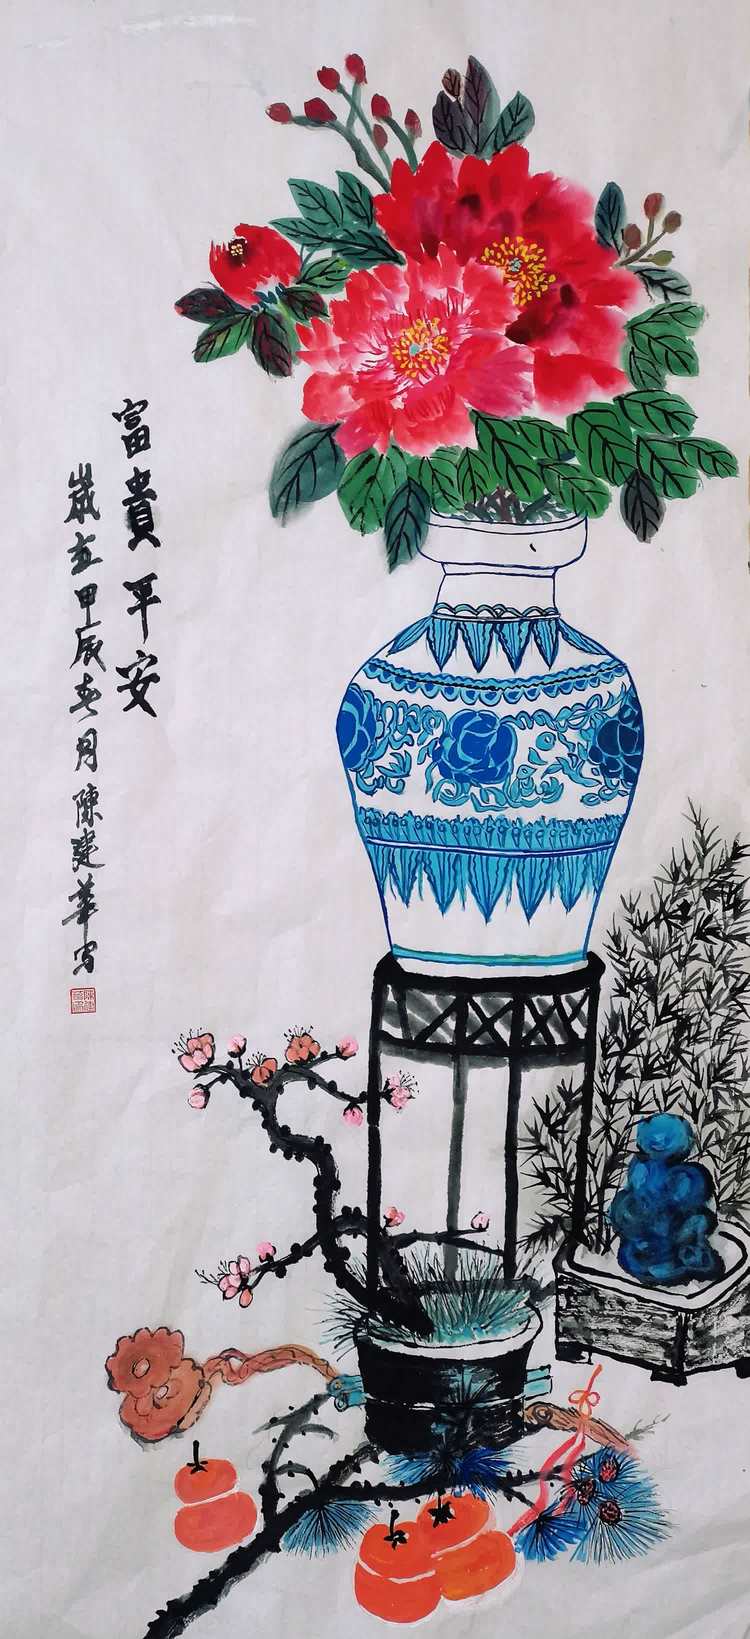 富貴平安
歲在甲辰春月陳建華寫